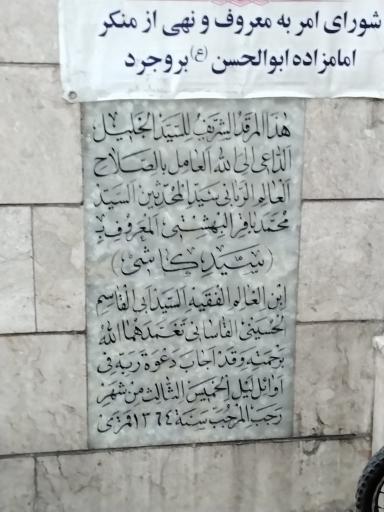 شورای امر به معروف و نهی از منکر
امامزاده ابوالحسن (ع) بروجرد
هذا المرقد الشریف للسید الجلیل
الداعی الی الله العامل بالصلاح
العالم الربانی سید المحدثین السید
محمد باقر البهشتی المعروف بـ
(سید کاشی)
ابن العالم الفقیه السید ابی القاسم
الحسینی القاسانی تغمدهما الله
برحمته وقد اجاب دعوة ربه فی
اوائل لیل الخمیس الثالث من شهر
رجب المرجب سنة ۱۳۶۴ قمری